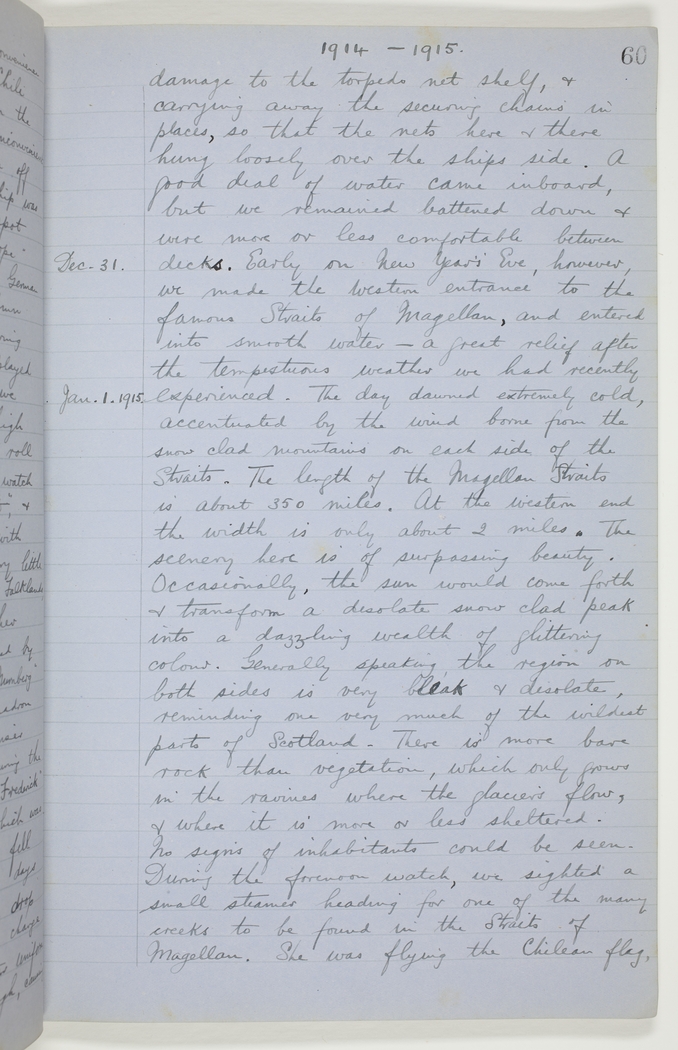 1914 — 1915.
60
damage to the torpedo net shelf, &
carrying away the securing chains in
places, so that the nets here & there
hung loosely over the ships side. A
good deal of water came inboard,
but we remained battened down &
were more or less comfortable between
Dec. 31. decks. Early on New Year's Eve, however,
we made the western entrance to the
famous Straits of Magellan, and entered
into smooth water — a great relief after
the tempestuous weather we had recently
Jan. 1. 1915. experienced. The day dawned extremely cold,
accentuated by the wind borne from the
snow clad mountains on each side of the
Straits. The length of the Magellan Straits
is about 350 miles. At the western end
the width is only about 2 miles. The
scenery here is of surpassing beauty.
Occasionally, the sun would come forth
& transform a disolate snow clad peak
into a dazzling wealth of glittering
colour. Generally speaking the region on
both sides is very bleak & disolate,
reminding one very much of the wildest
parts of Scotland. There is more bare
rock than vegetation, which only grows
in the ravines where the glaciers flow,
& where it is more or less sheltered.
No signs of inhabitants could be seen.
During the forenoon watch, we sighted a
small steamer heading for one of the many
creeks to be found in the Straits of
Magellan. She was flying the Chilean flag,